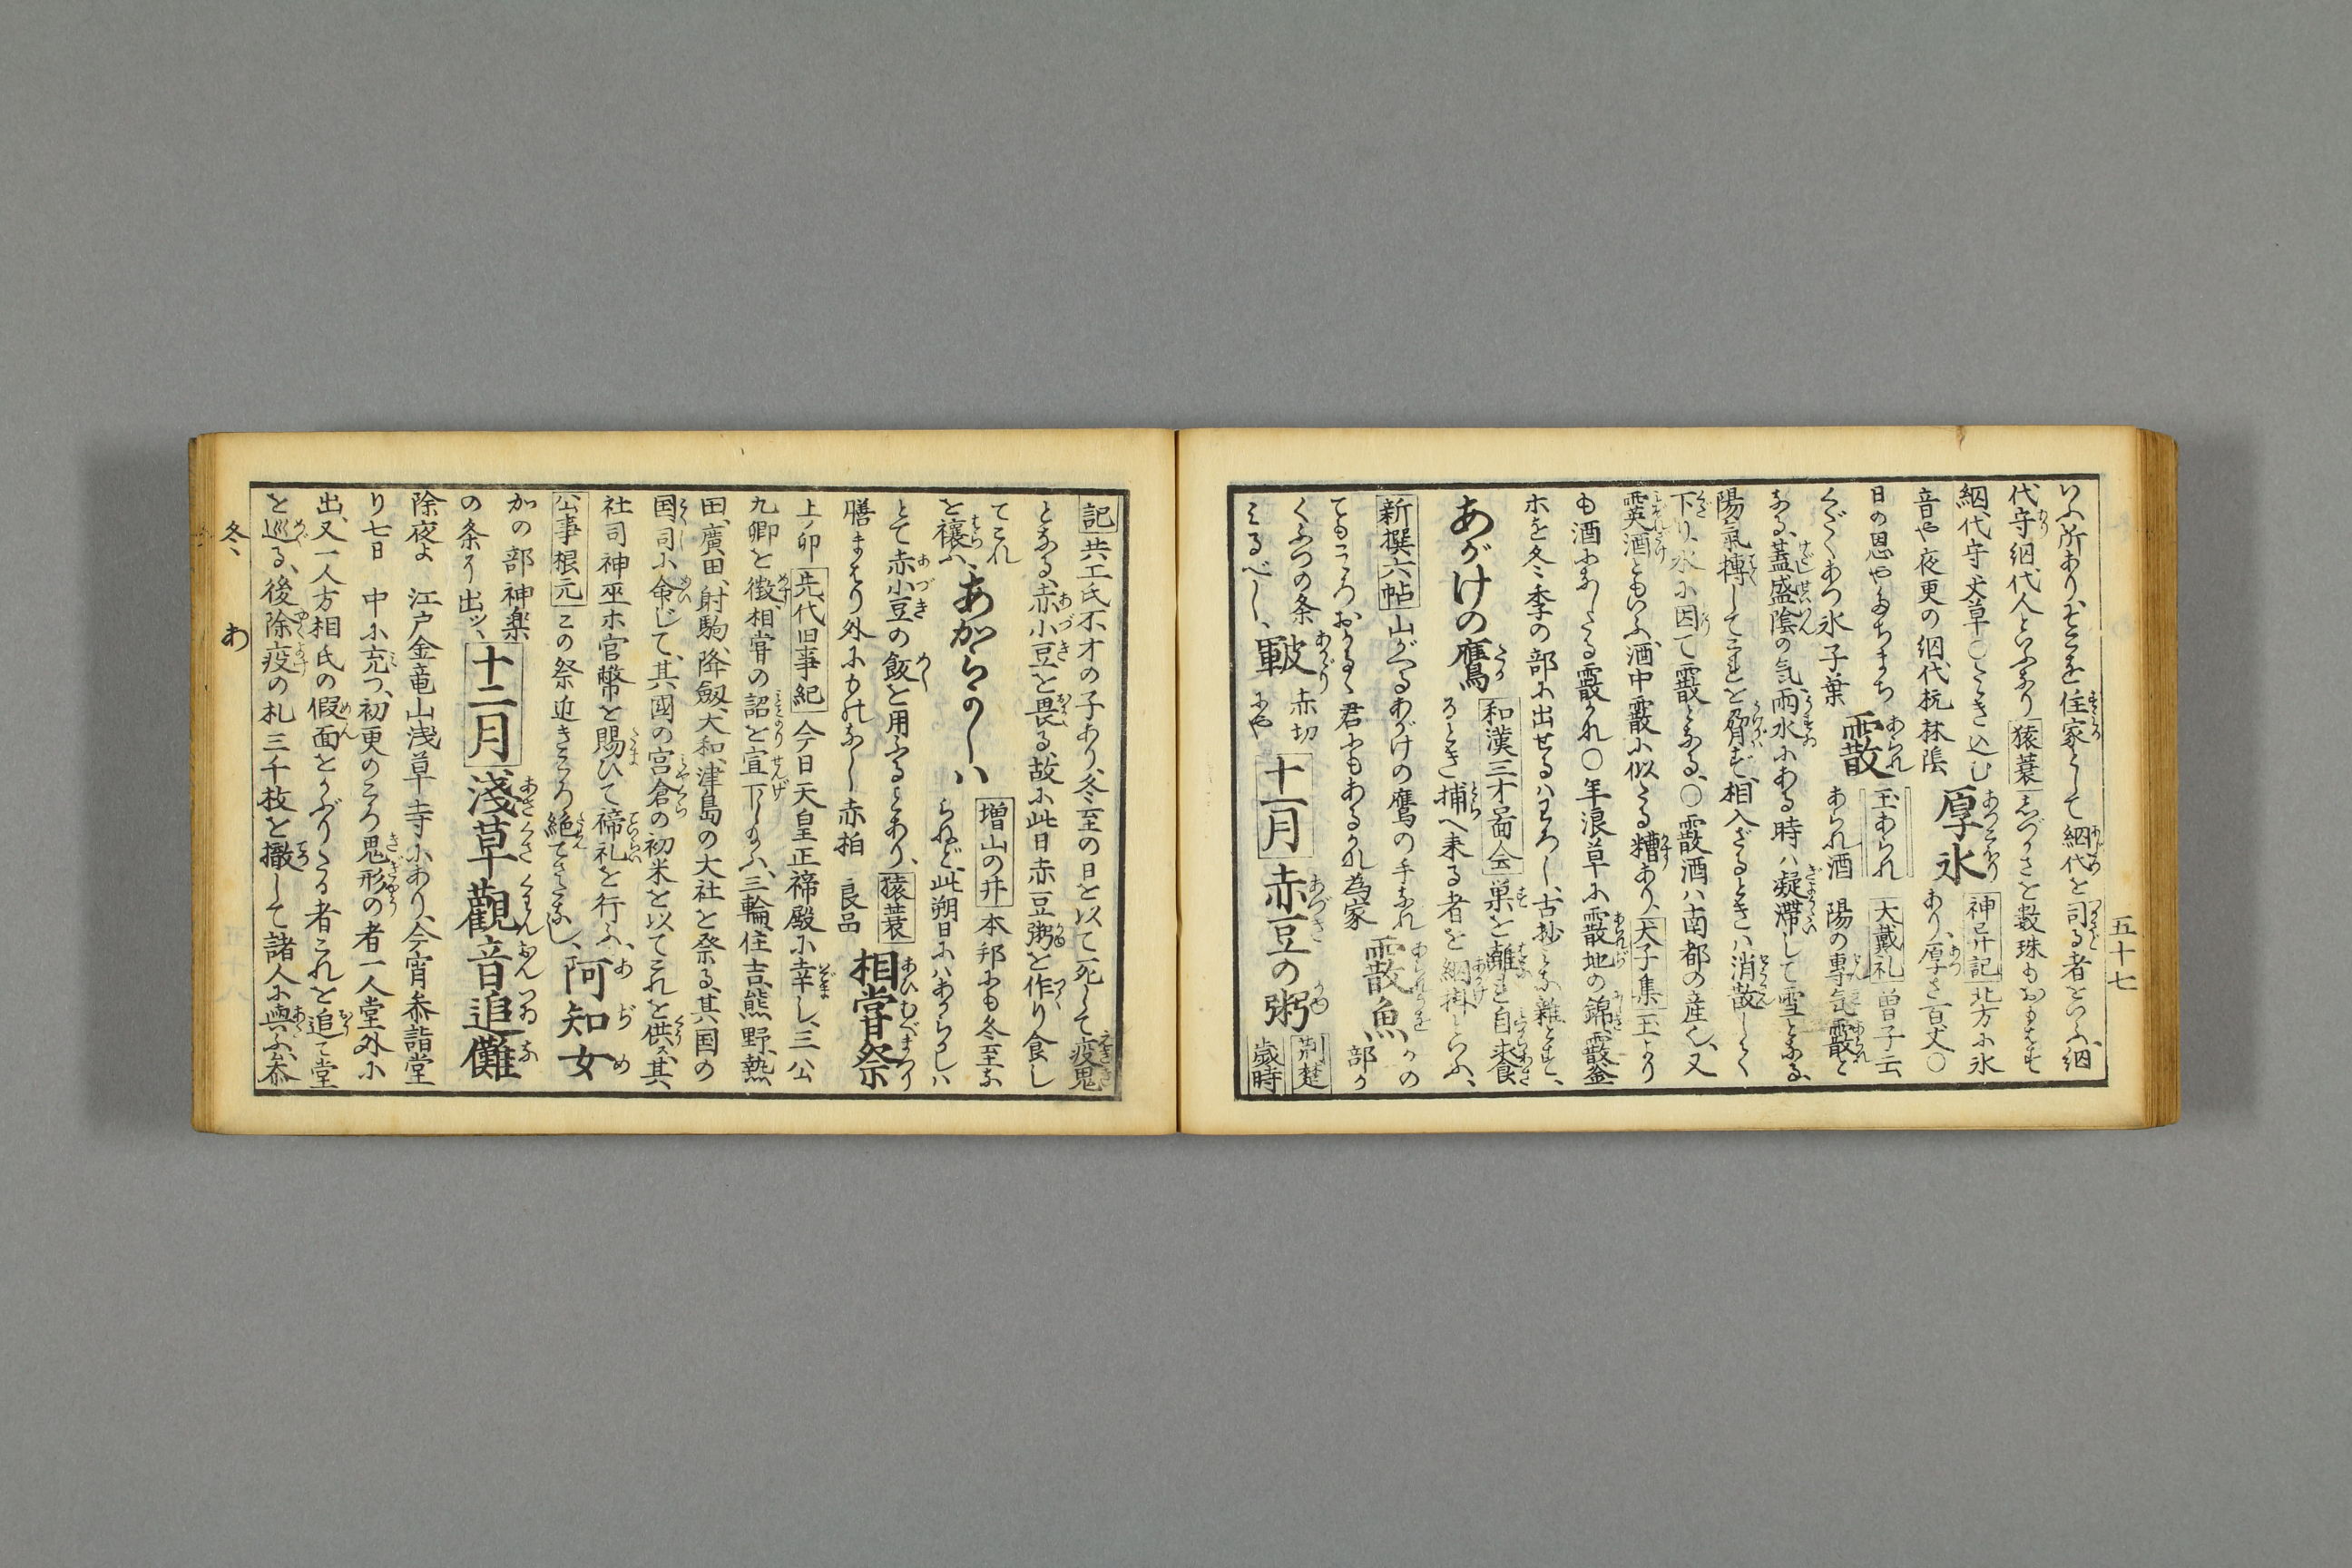 五十七
いふ所ありむとを住家として網代を司る者をいふ、網
代守網代人といふなり猿蓑しづかさを数珠もおもはず
網代守丈草〇とき込む厚氷神异記北方に氷あり、厚さ百丈〇
音や夜更の網代杭林陰
日の恩やたちまちくだくあつ氷子葉霰玉あられあられ酒大戴礼曽子云、陽の専気霰と
なる、蓋盛陰の気雨水にある時ハ凝滞して雪となる、
陽気摶してこれを脅ず、相入ざるときハ消散して
下り、氷に因て霰となる、〇霰酒ハ南都の産也、又
霙酒ともいふ、酒中霰に似たる糟あり、犬子集玉より
も酒にあしたる霰かれ〇年浪草に霰地の錦、霰釜
ホを冬季の部に出せるハわろし、古抄になし雑とす、
あがけの鷹和漢三才畣会巣を離れ自求食
るとき捕へ来る者を網掛といふ、
新撰六帖山がへるあがけの鷹の手なれ
てもこころおかるゝ君にもあるかれ為家霰魚かの部か
くぶつの条にや
みるべし、皸赤切十一月赤豆の粥荊楚歳時
記共工氏不才の子あり、冬至の日を以て死して疫鬼
となる、赤小豆を畏る、故に此日赤豆粥を作り食し
てこれを禳ふ、あからかしハ増山の井本邦にも冬至な
らねど、此朔日にハあからかしハ
とて赤小豆の飯を用ふるとあり、猿蓑
膳まはり外にものなし赤柏良品相嘗祭
上ノ卯先代旧事紀今日天皇正禘殿に幸し、三公
九卿を徴、相嘗の詔を宣下し給ふ、三輪、住吉、熊野、熱
田、廣田、射駒、降劔、大和、津島の大社を祭る、其国の
国司に命じて、其国の宮倉の初米を以てこれを供ズ、其
社司神巫ホ官幣を賜ひて禘礼を行ふ、
公事根元この祭近きころ絶てさたなし、阿知女
かの部神楽の条に出ツ、十二月浅草観音追儺
除夜よ江戸金竜山浅草寺にあり、今宵参詣堂
り七日中に充つ、初更のころ鬼形の者一人堂外に
出、又一人方相氏の假面をかぶりたる者これを追て堂
を巡る、後除疫の札三千枚を撒して諸人に與ふ、参
冬、あ